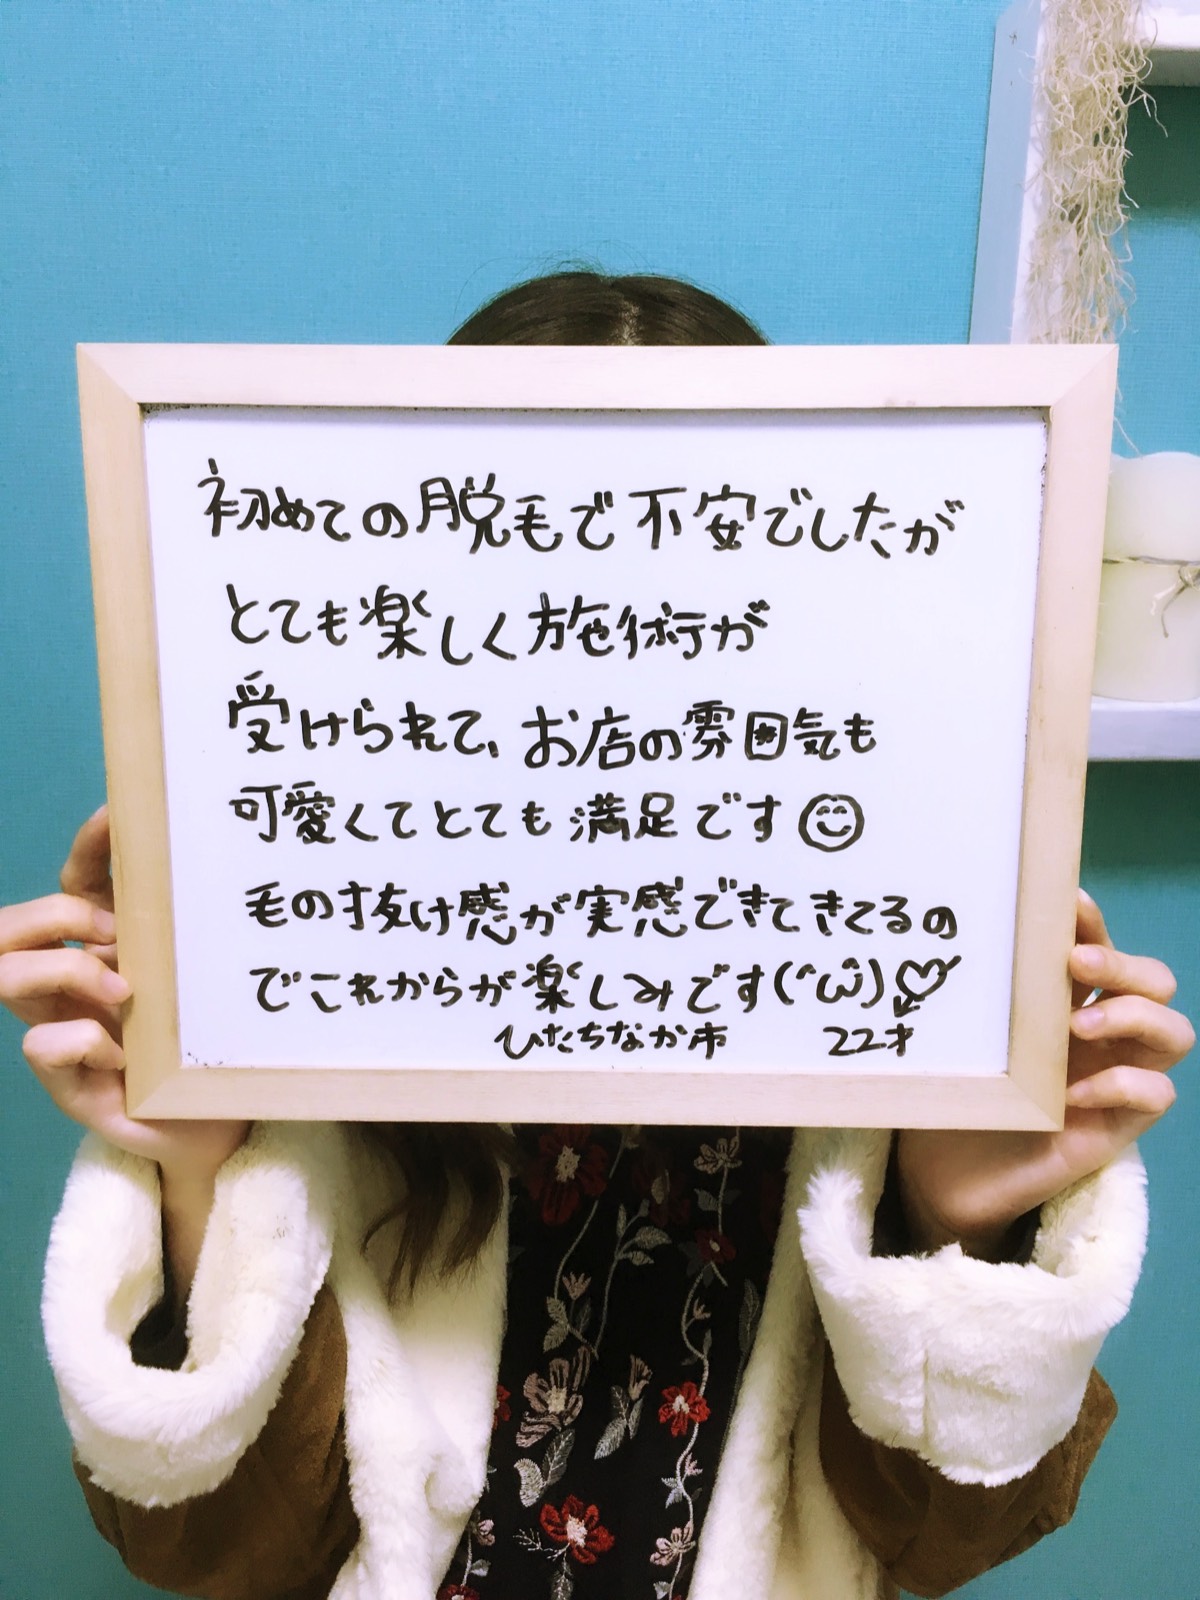 初めての脱毛で不安でしたが
とても楽しく施術が
受けられて、お店の雰囲気も
可愛くてとても満足です
毛の抜け感が実感できてきてるの
でこれからが楽しみです(^ω^)♡
ひたちなか市 22才